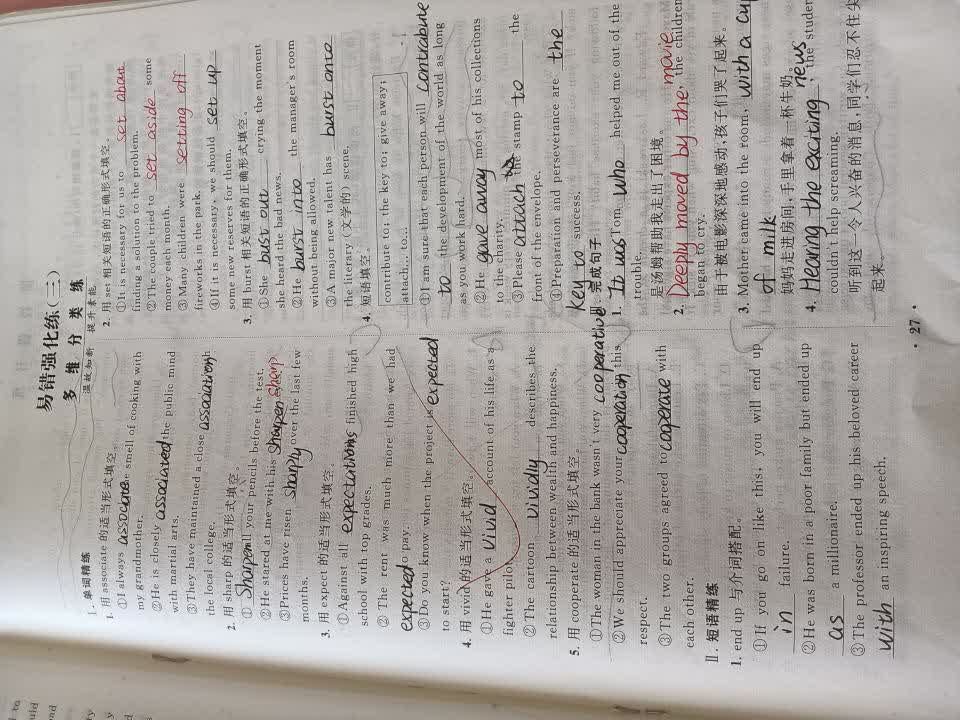 易错强化练(三)
多 维 分 类 练
温故知新 提升素能
Ⅰ. 单词精练
1. 用 associate 的适当形式填空。
①I always associate smell of cooking with
my grandmother.
②He is closely associated the public mind
with martial arts.
③They have maintained a close association
the local college.
2. 用 sharp 的适当形式填空。
① Sharpen all your pencils before the test.
②He stared at me with his sharp
③Prices have risen sharply over the last few
months.
3. 用 expect 的适当形式填空。
①Against all expectations finished high
school with top grades.
② The rent was much more than we had
expected to pay.
③Do you know when the project is expected
to start?
4. 用 vivid 的适当形式填空。
①He gave a vivid account of his life as a
fighter pilot.
② The cartoon vividly describes the
relationship between wealth and happiness.
5. 用 cooperate 的适当形式填空。
①The woman in the bank wasn't very cooperative
②We should appreciate your cooperation this
respect.
③The two groups agreed to cooperate with
each other.
Ⅱ. 短语精练
1. end up 与介词搭配。
①If you go on like this, you will end up
in failure.
②He was born in a poor family but ended up
as a millionaire.
③The professor ended up his beloved career
with an inspiring speech.
2. 用 set 相关短语的正确形式填空。
①It is necessary for us to set about
finding a solution to the problem.
②The couple tried to set aside some
money each month.
③Many children were setting off
fireworks in the park.
④If it is necessary, we should set up
some new reserves for them.
3. 用 burst 相关短语的正确形式填空。
①She bust out crying the moment
she heard the bad news.
②He burst into the manager's room
without being allowed.
③A major new talent has burst onto
the literary (文学的) scene.
4. 短语填空。
contribute to; the key to; give away;
attach... to...
①I am sure that each person will contrabune
to the development of the world as long
as you work hard.
②He gave away most of his collections
to the charity.
③Please attach the stamp to the
front of the envelope.
④Preparation and perseverance are the
key to success.
Ⅲ. 完成句子
1. It was Tom who helped me out of the
trouble.
是汤姆帮助我走出了困境。
2. Deeply moved by the movie, the children
began to cry.
由于被电影深深地感动,孩子们哭了起来。
3. Mother came into the room, with a cup
of milk
妈妈走进房间,手里拿着一杯牛奶
4. Hearing the exciting news, the studen
couldn't help screaming.
听到这一令人兴奋的消息,同学们忍不住尖
起来。
· 27 ·